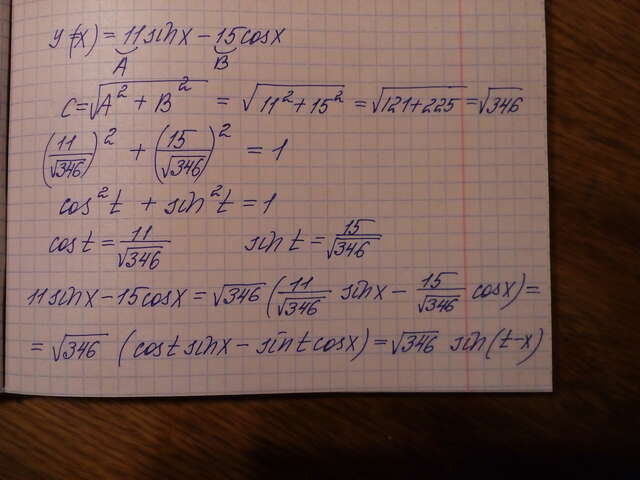 y(x) = 11 sin x − 15 cos x
A B
C = √(A² + B²) = √(11² + 15²) = √(121 + 225) = √346
(11/√346)² + (15/√346)² = 1
cos²t + sin²t = 1
cos t = 11/√346 sin t = 15/√346
11 sin x − 15 cos x = √346 (11/√346 sin x − 15/√346 cos x) =
= √346 (cos t sin x − sin t cos x) = √346 sin(t−x)